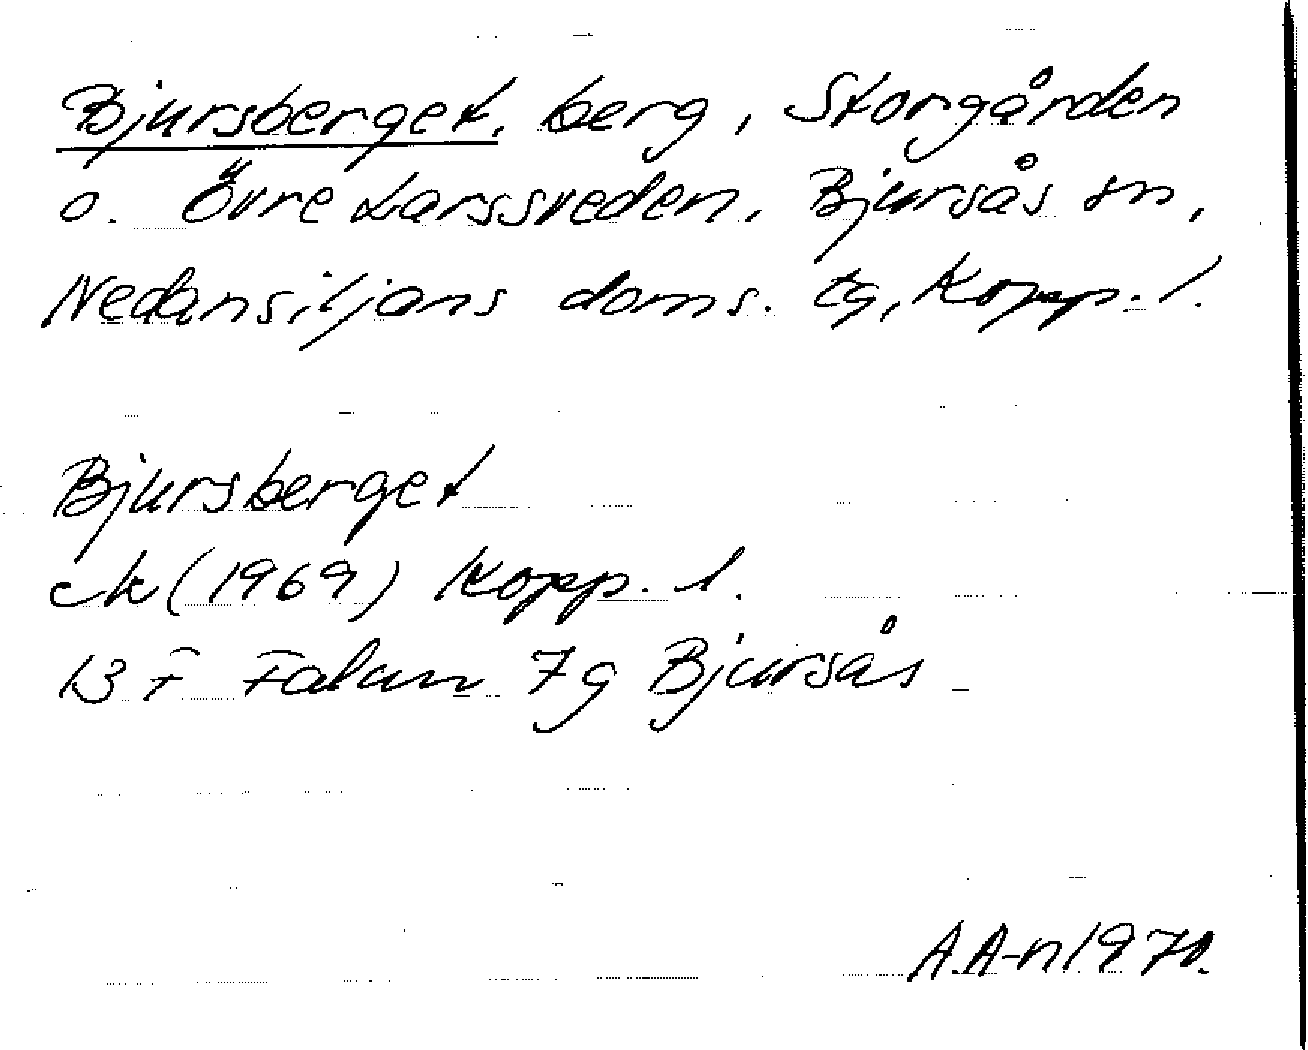 Bjursberget, berg, Storgården
o. Övre Larssveden, Bjursås sn,
Nedansiljans doms. tg, Kopp. l.
Bjursberget
ek (1969) Kopp. l.
13 F Falun 7g Bjursås
A.A-n 1970.